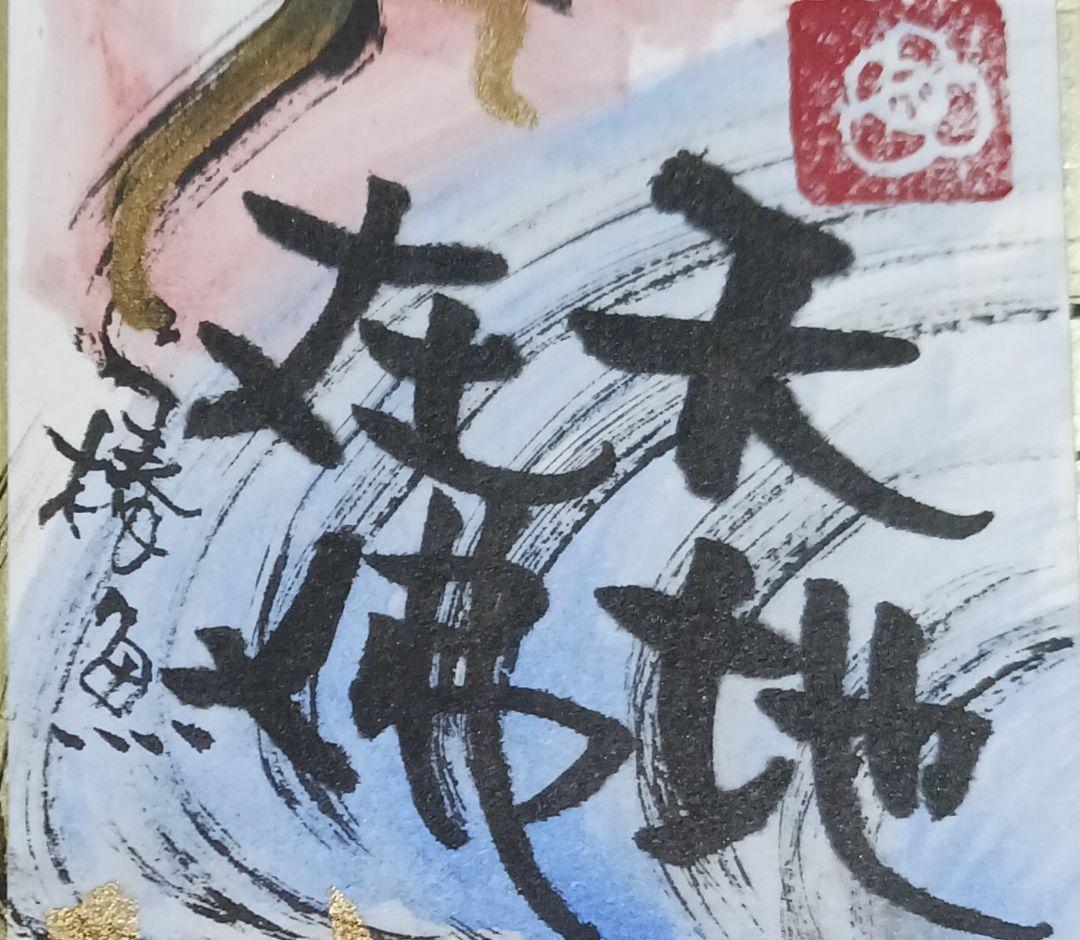 天地
在佛
椿魚